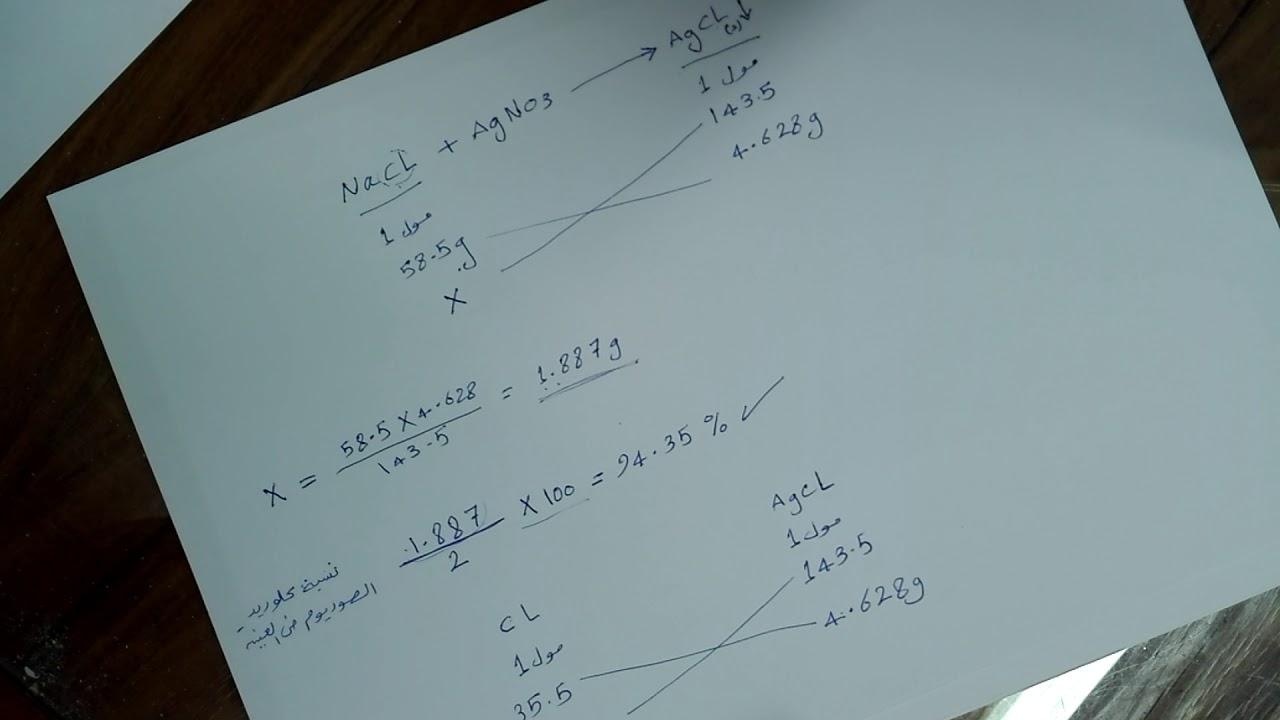 NaCL + AgNO3 → AgCL(s)↓
1 مول 1 مول
58.5g 143.5
X 4.628g
X = 58.5 X 4.628 / 143.5 = 1.887g
نسبة كلوريد الصوديوم في العينة 1.887 / 2 X 100 = 94.35 % ✓
CL AgCL
1 مول 1 مول
35.5 143.5
4.628g